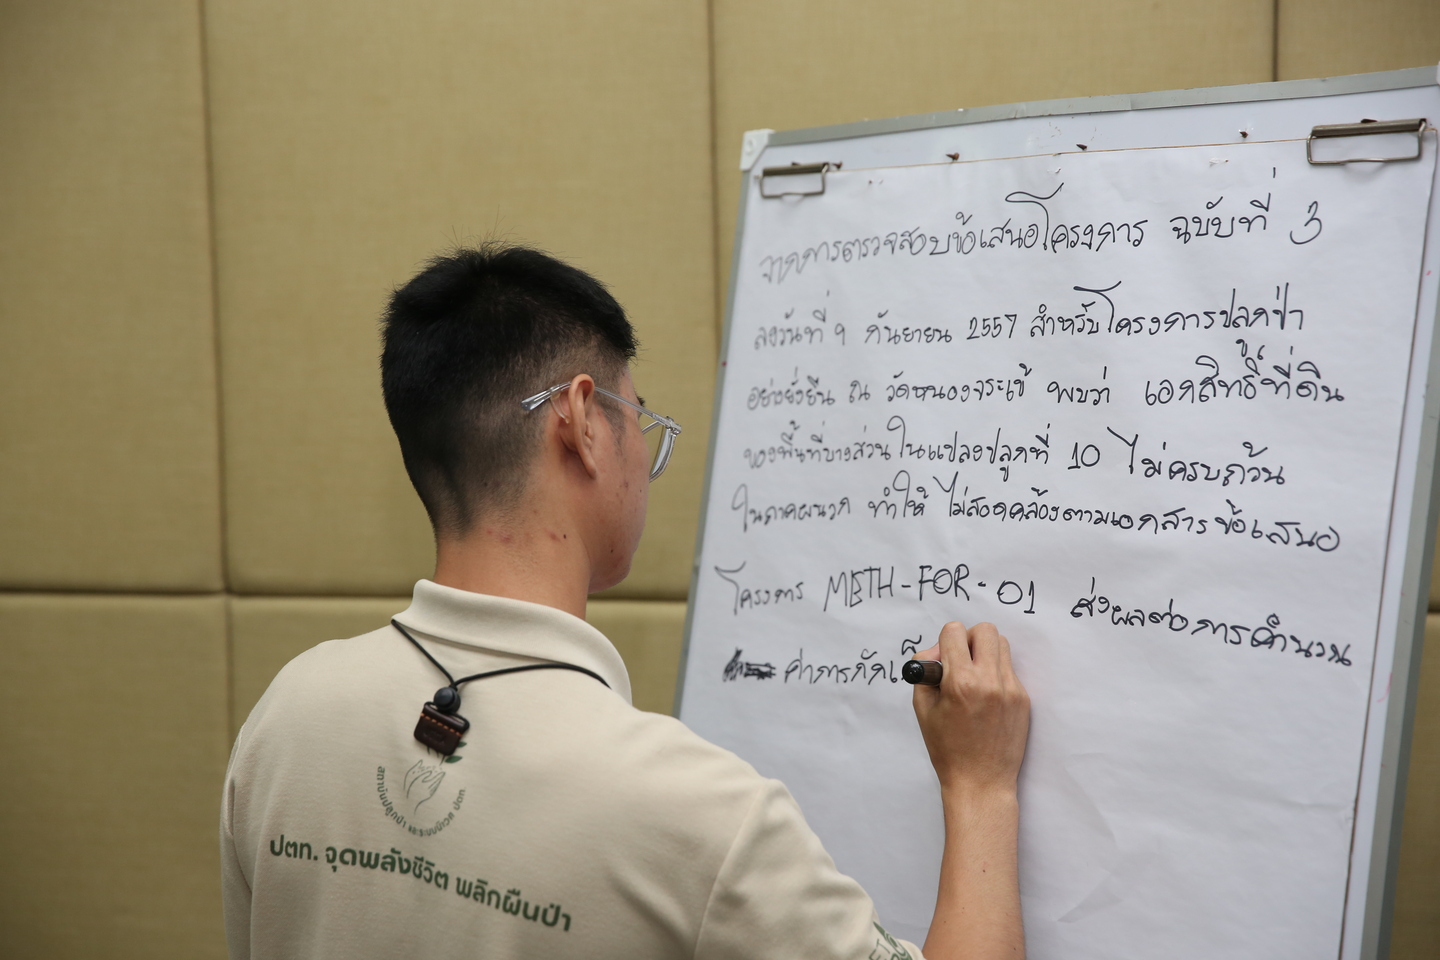 จากการตรวจสอบข้อเสนอโครงการ ฉบับที่ 3
ลงวันที่ 9 กันยายน 2557 สำหรับโครงการปลูกป่า
อย่างยั่งยืน ณ วัดหนองจระเข้ พบว่า เอกสิทธิ์ที่ดิน
ของพื้นที่บางส่วนในแปลงปลูกที่ 10 ไม่ครบถ้วน
ในภาคผนวก ทำให้ ไม่สอดคล้องตามเอกสารข้อเสนอ
โครงการ METH-FOR-01 ส่งผลต่อการคำนวณ
ค่าการกักเก็
สถาบันปลูกป่า และระบบนิเวศ ปตท.
ปตท. จุดพลังชีวิต พลิกผืนป่า